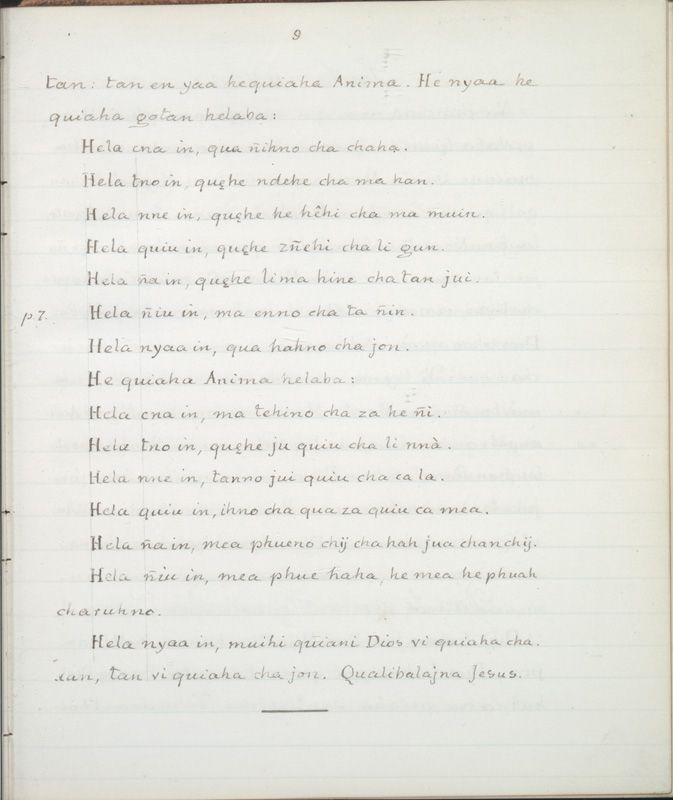 9
tan: tan en yaa hequiaha Anima. He nyaa he
quiaha gotan helaba:
Hela cna in, qua ñihno cha chaha.
Hela tno in, quęhe ndehe cha ma han.
Hela nne in, quęhe he hêhi cha ma muin.
Hela quiu in, quęhe zñehi cha li gun.
Hela ña in, quęhe lima hine cha tan jui.
p7. Hela ñiu in, ma enno cha ta ñin.
Hela nyaa in, qua hahno cha jon.
He quiaha Anima helaba:
Hela cna in, ma tehino cha za he ñi.
Hela tno in, quęhe ju quiu cha li nnà.
Hela nne in, tanno jui quiu cha ca la.
Hela quiu in, ihno cha qua za quiu ca mea.
Hela ña in, mea phueno chij cha hah jua chanchij.
Hela ñiu in, mea phue haha, he mea he phuah
charuhno.
Hela nyaa in, muihi qu̅iani Dios vi quiaha cha.
tan vi quiaha cha jon. Qualibalajna Jesus.